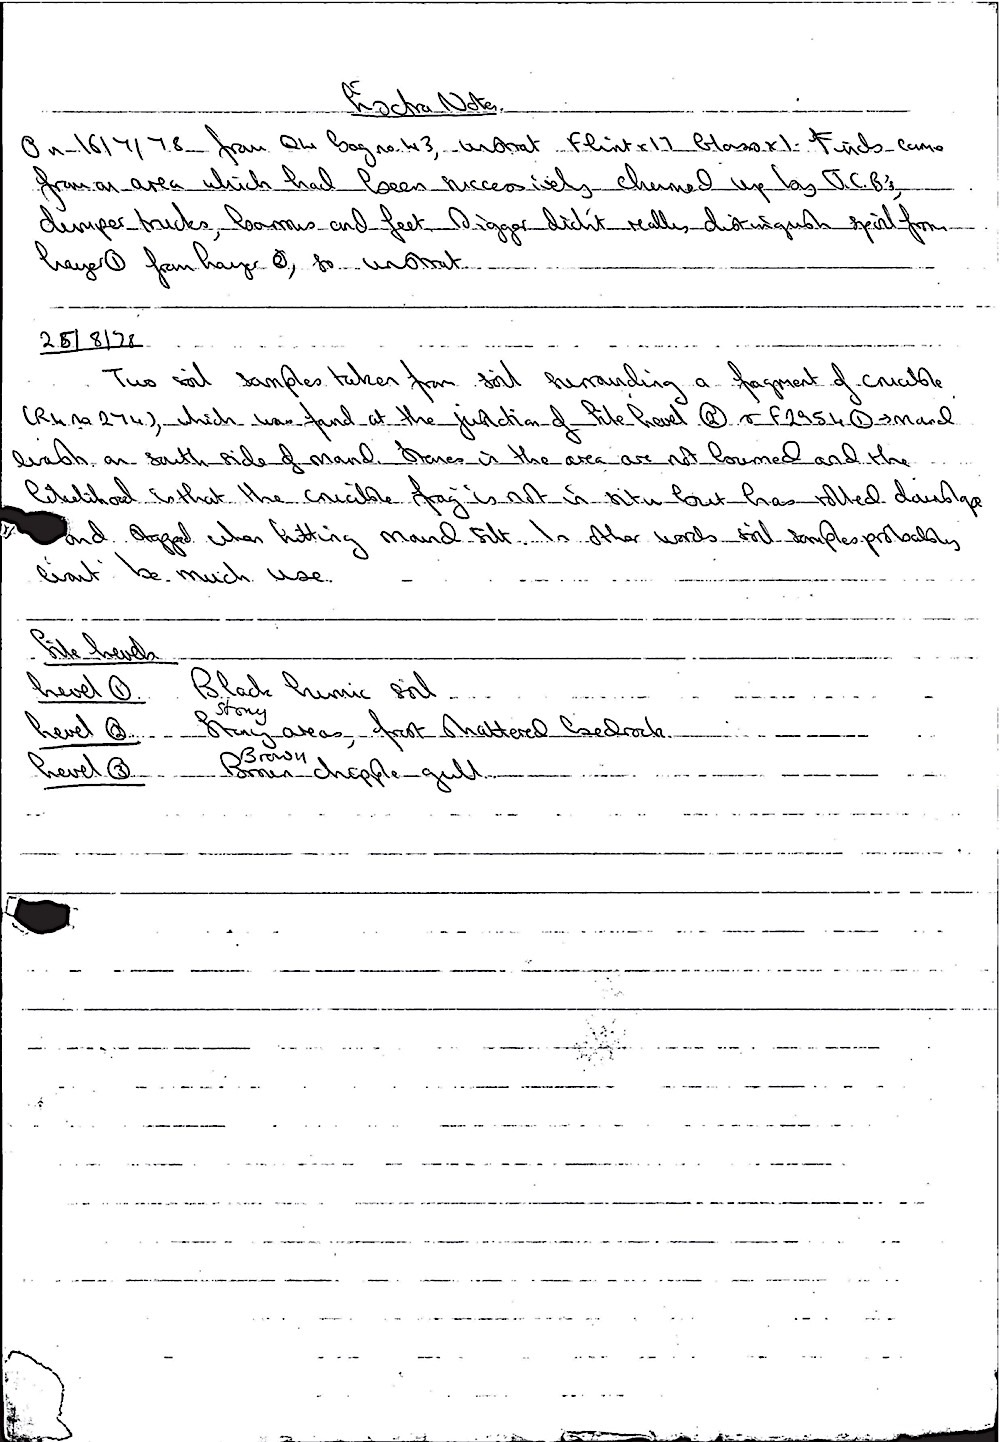 Extra Notes.
On 16/7/78 from Q4 bag no. 43, unstrat Flint x 17 Glass x 1. Finds came
from an area which had been successively churned up by J.C.B's,
dumper trucks, barrows and feet. Digger didn't really distinguish spoil from
Layer ① from Layer ②, so unstrat
25/8/78
Two soil samples taken from soil surrounding a fragment of crucible
(R4 no 274), which was found at the junction of Site Level ② & F2954 ① → mound
wash on south side of mound. Stones in the area are not burned and the
likelihood is that the crucible frag is not in situ but has rolled downslope
and stopped when hitting mound silt. In other words soil samples probably
won't be much use.
Site Levels
Level ① Black humic soil
stony
Level ② Stony areas, frost shattered bedrock
Brown
Level ③ Brown chapple-gull